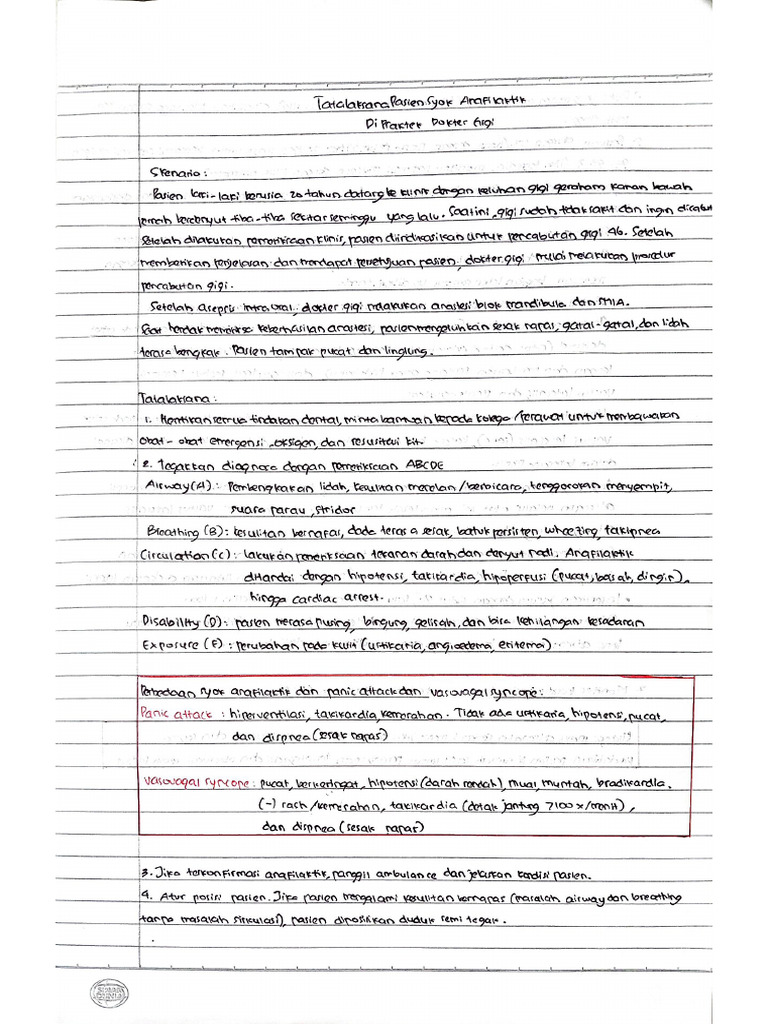 Tatalaksana Pasien Syok Anafilaktik
Di Praktek Dokter Gigi
Skenario:
Pasien laki-laki berusia 20 tahun datang ke klinik dengan keluhan gigi geraham kanan bawah
pernah berdenyut tiba-tiba sekitar seminggu yang lalu. Saat ini, gigi sudah tidak sakit dan ingin dicabut
Setelah dilakukan pemeriksaan klinis, pasien diindikasikan untuk pencabutan gigi 46. Setelah
memberikan penjelasan dan mendapat persetujuan pasien, dokter gigi mulai melakukan prosedur
pencabutan gigi.
Setelah asepsis intraoral, dokter gigi melakukan anastesi blok mandibula dan
Saat hendak memeriksa keberhasilan anastesi, pasien mengeluhkan sesak napas, gatal-gatal, dan lidah
terasa bengkak. Pasien tampak pucat dan linglung.
Tatalaksana:
1. Hentikan semua tindakan dental, minta bantuan kepada kolega/perawat untuk membawakan
obat-obat emergensi, oksigen, dan resusitasi kit.
2. Tegakkan diagnosa dengan pemeriksaan ABCDE
Airway (A): Pembengkakan lidah, kesulitan menelan/berbicara, tenggorokan menyempit,
suara parau, stridor
Breathing (B): kesulitan bernapas, dada terasa sesak, batuk persisten, wheezing, takipnea
Circulation (C): lakukan pemeriksaan tekanan darah dan denyut nadi. Anafilaktik
ditandai dengan hipotensi, takikardia, hipoperfusi (pucat, basah, dingin),
hingga cardiac arrest.
Disability (D): pasien merasa pusing, bingung, gelisah, dan bisa kehilangan kesadaran
Exposure (E): perubahan pada kulit (urtikaria, angioedema, eritema)
Perbedaan syok anafilaktik dan panic attack dan vasovagal syncope:
Panic attack: hiperventilasi, takikardia, kemerahan. Tidak ada urtikaria, hipotensi, pucat,
dan dispnea (sesak napas)
Vasovagal syncope: pucat, berkeringat, hipotensi (darah rendah), mual muntah, bradikardia.
(-) rash/kemerahan, takikardia (detak jantung >100x/menit),
dan dispnea (sesak napas)
3. Jika terkonfirmasi anafilaktik, panggil ambulance dan jelaskan kondisi pasien.
4. Atur posisi pasien. Jika pasien mengalami kesulitan bernapas (masalah airway dan breathing
tanpa masalah sirkulasi), pasien diposisikan duduk semi tegak.